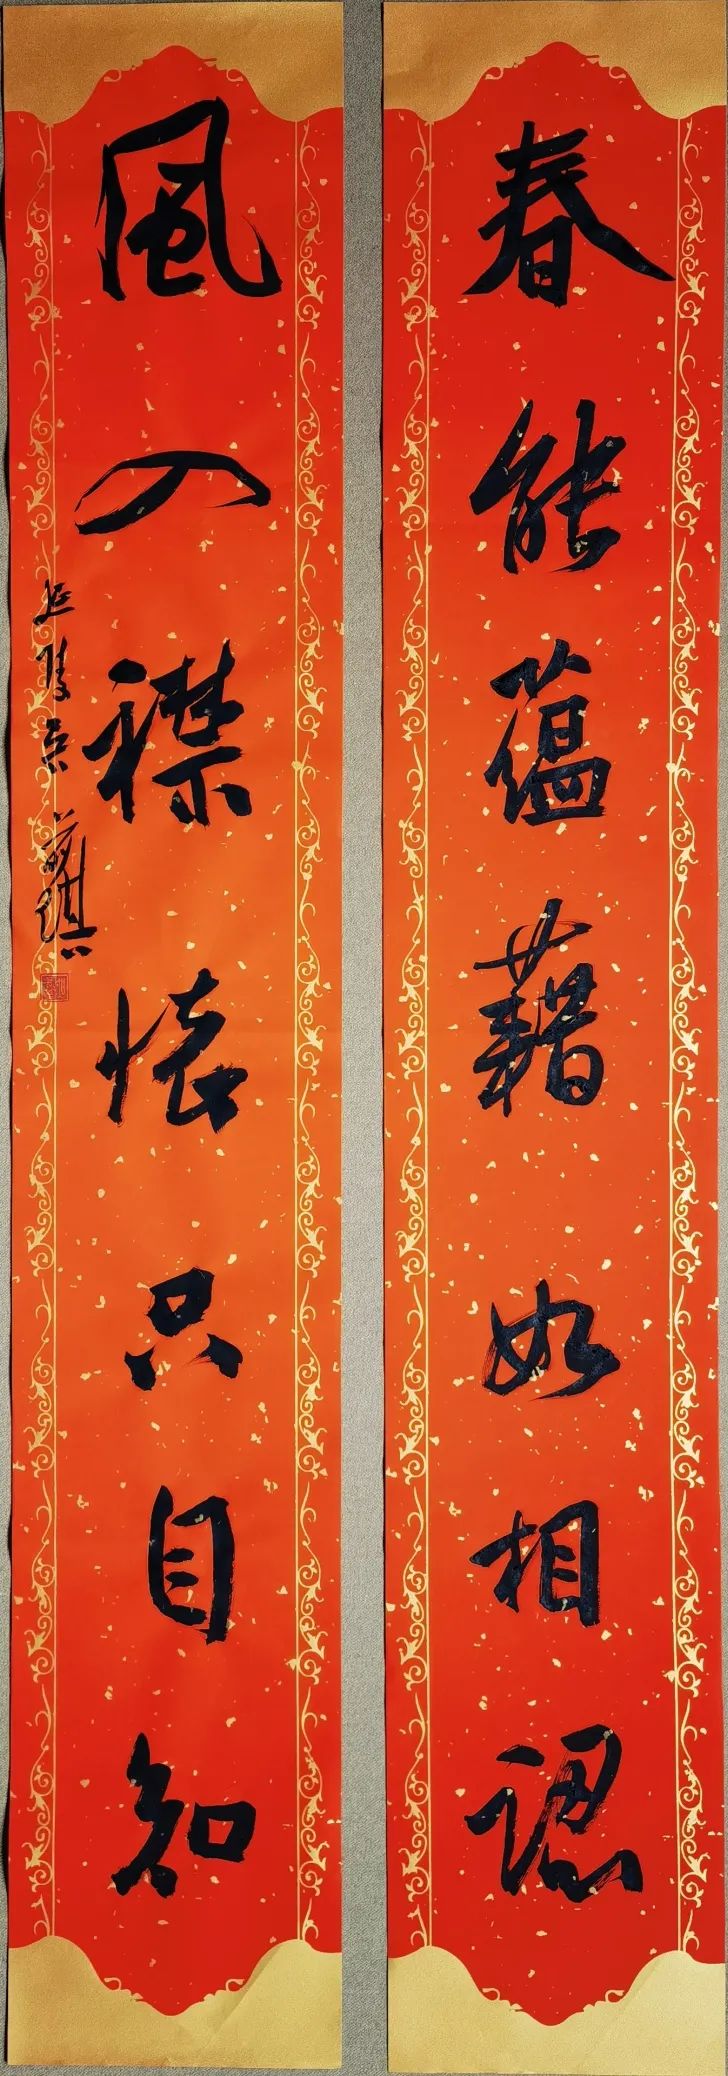 春能蕴藉如相認
風入襟懷只自知